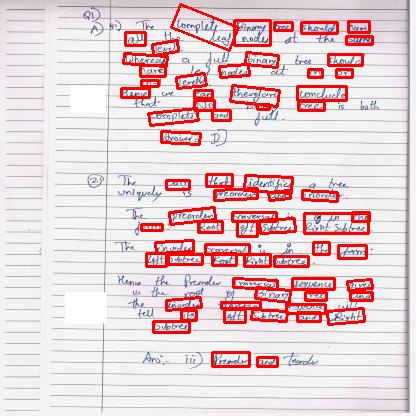 Q1)
A) Q1) The Complete binary tree should have
all the leaf nodes at the same
level.
whereas a full binary tree should
have nodes at
levels
Hence we can therefore conclude
that tree is both
Complete and full.
Answer: D)
(2) The pair that identifies a tree
uniquely is preorder and inorder.
The preorder traversal is in the
form Root left Subtree Right Subtree.
The inorder traversal is in the form
left subtree Root Right Subtree.
Hence the Preorder traversal sequence gives
us the root of Binary tree and
the inorder will
tell its left subtree and Right
subtree
Ans:- iii) Preorder and Inorder